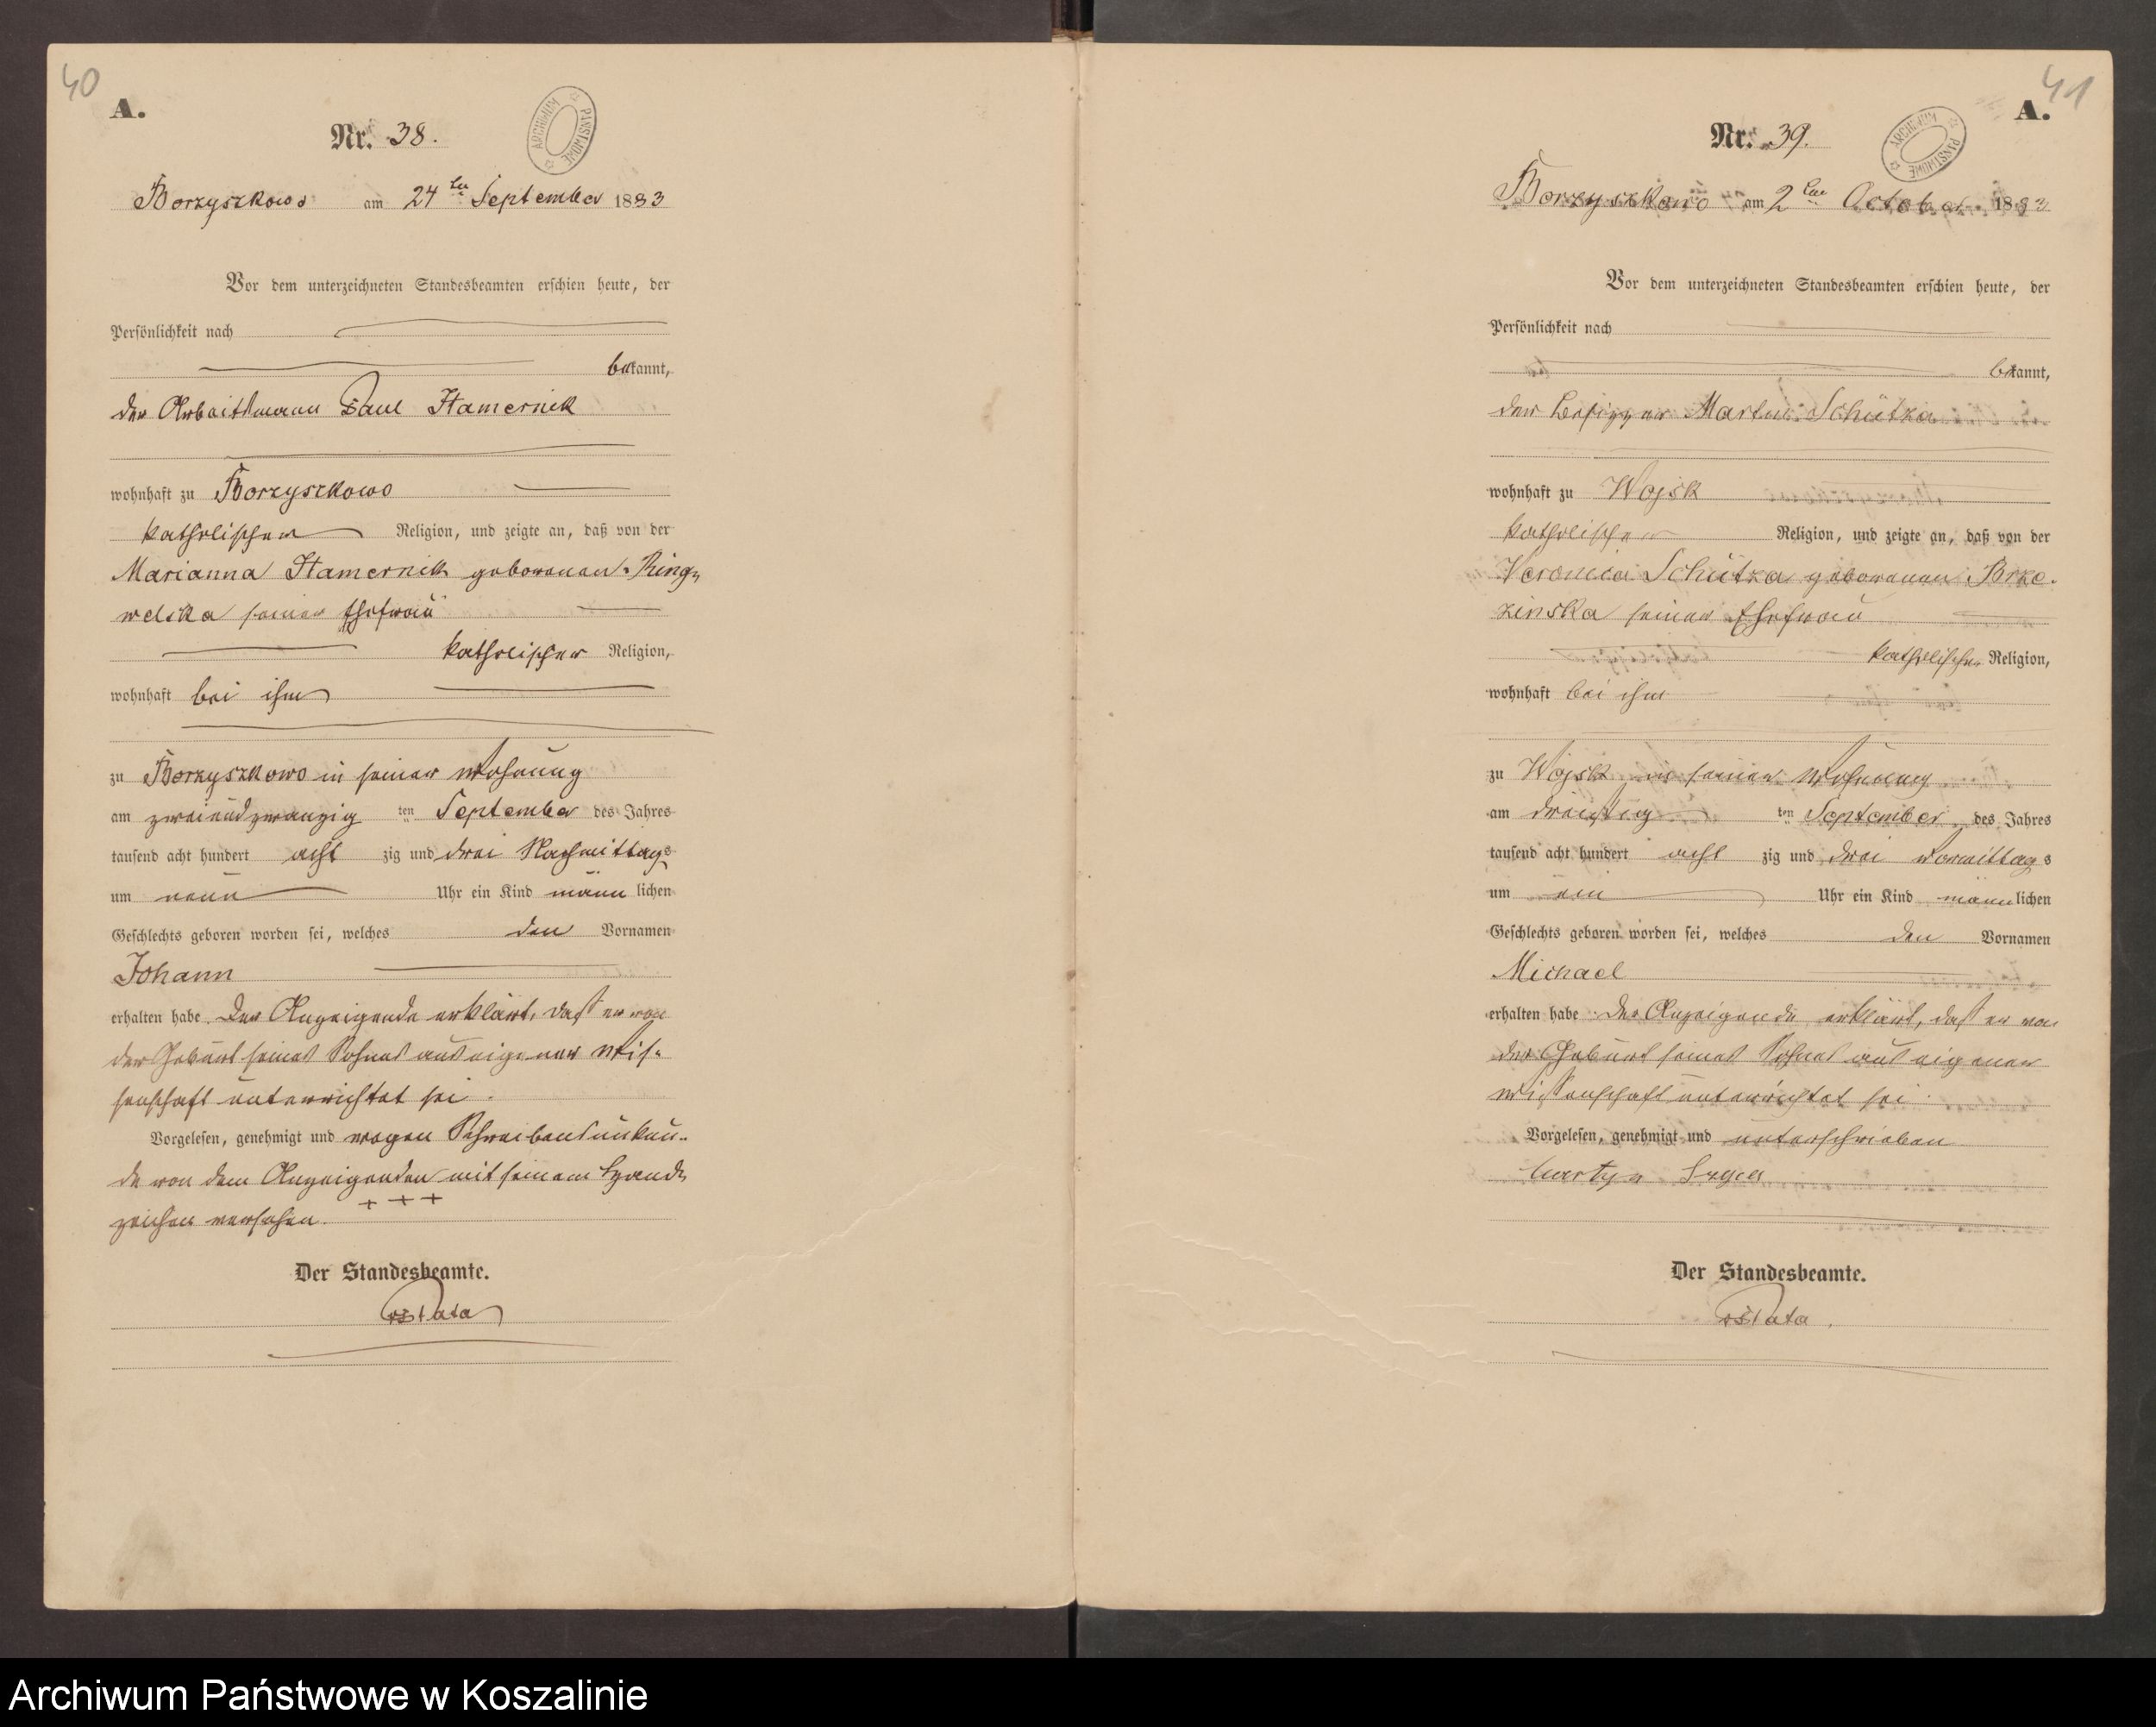 40
A.
Nr. 38.
ARCHIWUM PAŃSTWOWE
Borzyszkowo am 24ten September 1883
Vor dem unterzeichneten Standesbeamten erschien heute, der
Persönlichkeit nach
bekannt,
der Arbeitsmann Paul Hamernik
wohnhaft zu Borzyszkowo
katholischer Religion, und zeigte an, daß von der
Marianna Hamernik geborenen Ring-
welska seiner Ehefrau
katholischer Religion,
wohnhaft bei ihm
zu Borzyszkowo in seiner Wohnung
am zweiundzwanzig ten September des Jahres
tausend acht hundert acht zig und drei Nachmittags
um neun Uhr ein Kind männ lichen
Geschlechts geboren worden sei, welches den Vornamen
Johann
erhalten habe. Der Anzeigende erklärt, daß er von
der Geburt seines Sohnes aus eigener Wis-
senschaft unterrichtet sei.
Vorgelesen, genehmigt und wegen Schreibensunkun-
de von dem Anzeigenden mit seinem Hand-
zeichen versehen. + + +
Der Standesbeamte.
41
A.
Nr. 39.
ARCHIWUM PAŃSTWOWE
Borzyszkowo am 2ten October 1883
Vor dem unterzeichneten Standesbeamten erschien heute, der
Persönlichkeit nach
bekannt,
der Besitzer Martin Schütza
wohnhaft zu Wojsk
katholischer Religion, und zeigte an, daß von der
Veronica Schütza geborenen Brze-
zinska seiner Ehefrau
katholischer Religion,
wohnhaft bei ihm
zu Wojsk in seiner Wohnung
am dreißig ten September des Jahres
tausend acht hundert acht zig und drei Vormittags
um ein Uhr ein Kind männlichen
Geschlechts geboren worden sei, welches den Vornamen
Michael
erhalten habe. Der Anzeigende erklärt, daß er von
der Geburt seines Sohnes aus eigener
Wissenschaft unterrichtet sei.
Vorgelesen, genehmigt und unterschrieben
Der Standesbeamte.
Archiwum Państwowe w Koszalinie